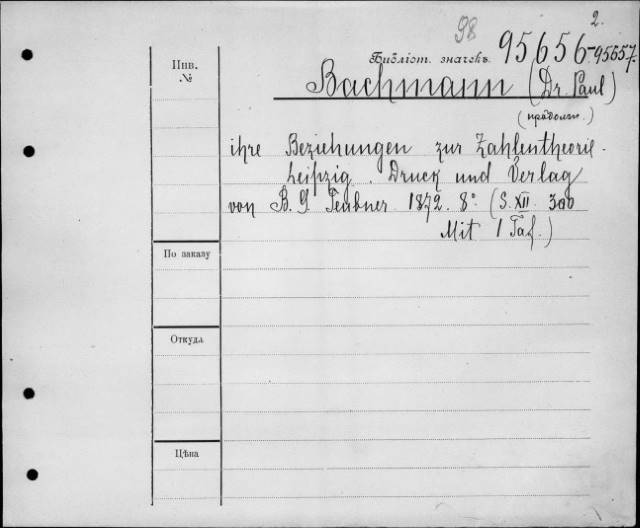 2.
98
Инв.
№
Библіот. значекъ 95656-95657.
Bachmann (Dr. Paul)
ihre Beziehungen zur Zahlentheorie.
Leipzig. Druck und Verlag
von B. G. Teubner 1872. 8° (S. XII. 300
Mit 1 Taf.)
По заказу
Откуда
Цѣна